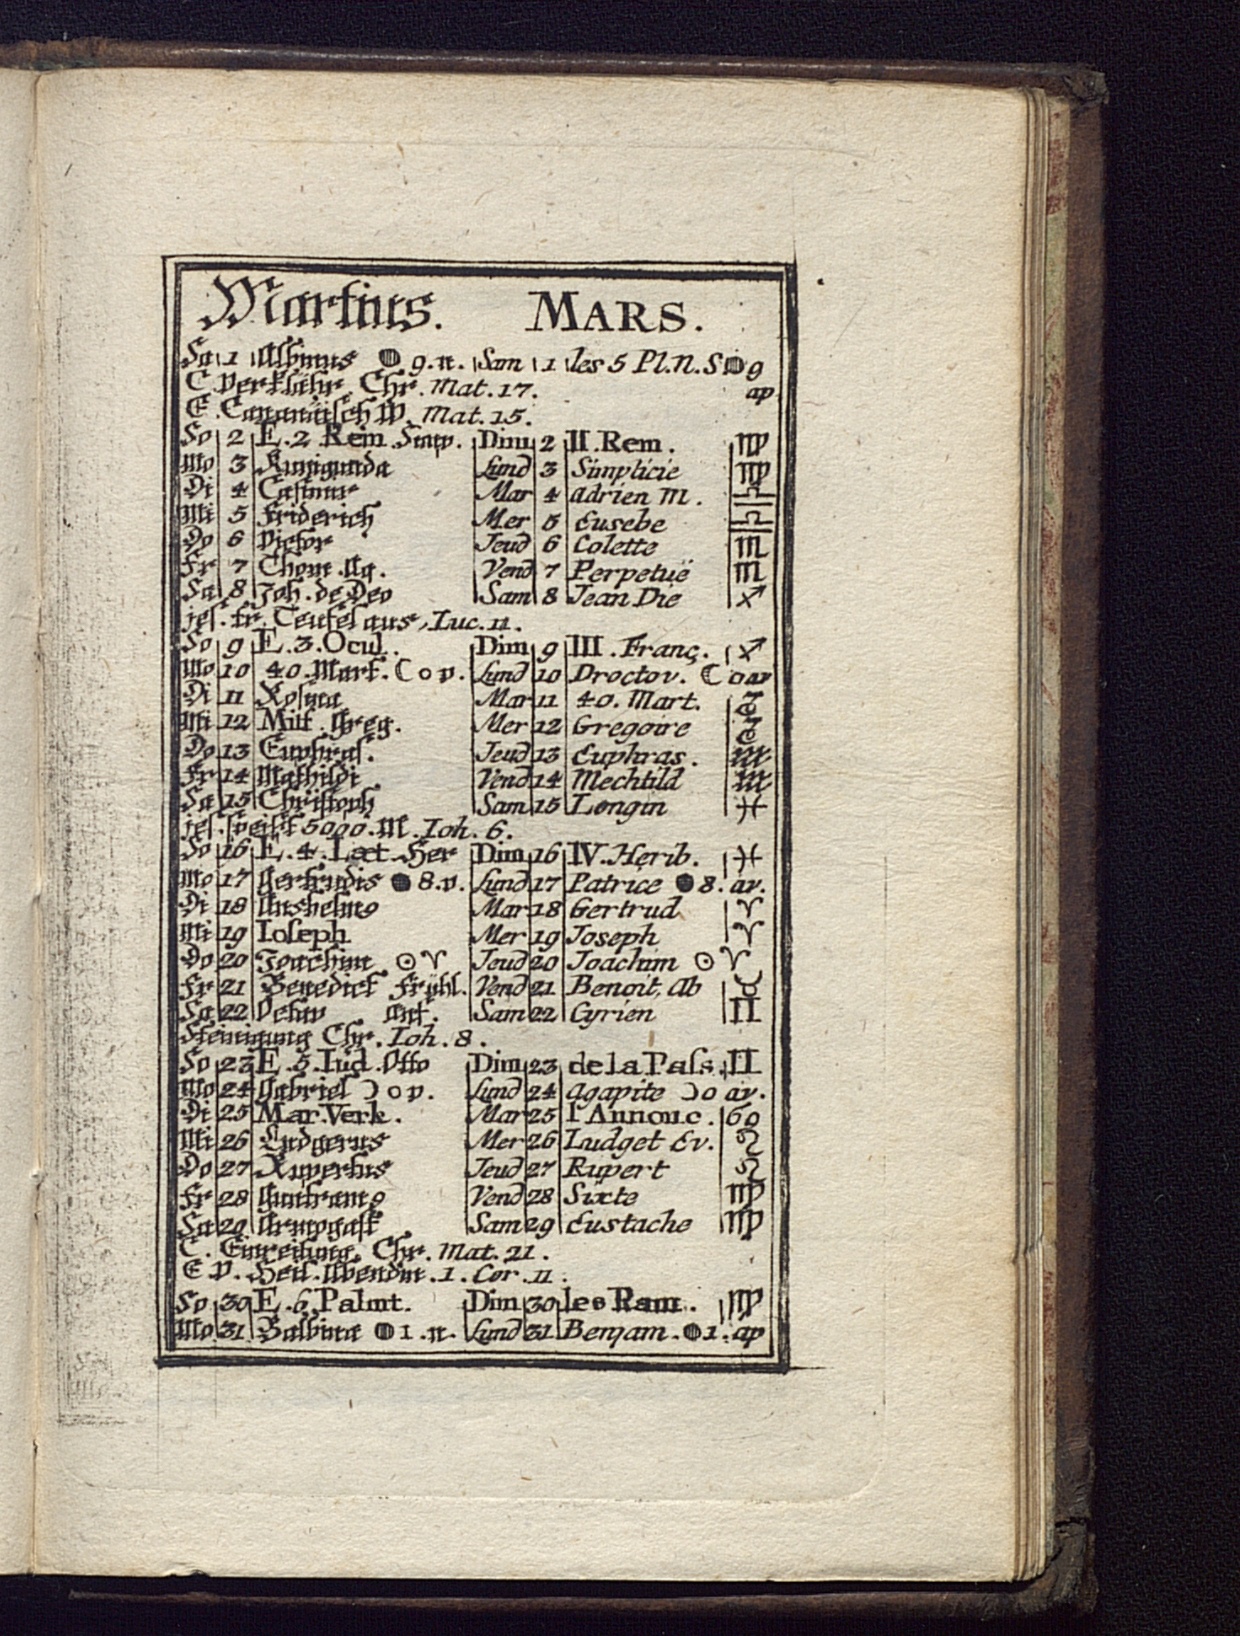 Martius. MARS.
Sa 1 Albinus 9.n. Sam 1 les 5 Pl.N.S 9
C. Verklähr. Chr. Mat. 17. ap
E. Cananäisch W. Mat. 15.
So 2 E. 2 Rem. Simp. Dim 2 II. Rem. ♍
Mo 3 Kunigunda Lund 3 Simplicie ♍
Di 4 Casimir Mar 4 Adrien M. ♎
Mi 5 Friderich Mer 5 Eusebe ♎
Do 6 Victor Jeud 6 Colette ♏
Fr 7 Thom. Aq. Vend 7 Perpetuë ♏
Sa 8 Joh. de Deo Sam 8 Jean Die ♐
jes. tr. Teufel aus, Luc. 11.
So 9 E. 3. Ocul. Dim 9 III. Franç. ♐
Mo 10 40. Mart. ☾ 0 v. Lund 10 Droctov. ☾ 0 av
Di 11 Rosina Mar 11 40. Mart. ♑
Mi 12 Mitt. Greg. Mer 12 Gregoire ♑
Do 13 Euphras. Jeud 13 Euphras. ♒
Fr 14 Mathildi Vend 14 Mechtild ♒
Sa 15 Christoph Sam 15 Longin ♓
jes. speist 5000. M. Ioh. 6.
So 16 E. 4. Læt. Her Dim 16 IV. Herib. ♓
Mo 17 Gertrudis ● 8. v. Lund 17 Patrice ● 8. av.
Di 18 Anshelmo Mar 18 Gertrud ♈
Mi 19 Ioseph Mer 19 Joseph ♈
Do 20 Joachim ☉ ♈ Jeud 20 Joachim ☉ ♈
Fr 21 Benedict Frühl. Vend 21 Benoit, Ab ♉
Sa 22 Anf. Sam 22 Cyrien ♊
Steinigung Chr. Ioh. 8.
So 23 E. 5. Iud. Otto Dim 23 de la Pass. ♊
Mo 24 Gabriel ☽ 0 v. Lund 24 Agapite ☽ 0 av.
Di 25 Mar. Verk. Mar 25 l'Annonc. ♋
Mi 26 Ludgerus Mer 26 Ludget Ev. ♌
Do 27 Rupertus Jeud 27 Rupert ♌
Fr 28 Guntramo Vend 28 Sixte ♍
Sa 29 Arnogast Sam 29 Eustache ♍
C. Einreitung. Chr. Mat. 21.
E. V. Heil. Abendm. 1. Cor. 11.
So 30 E. 6. Palmt. Dim 30 les Ram. ♍
Mo 31 Balbina 1. n. Lund 31 Benjam. 1. ap